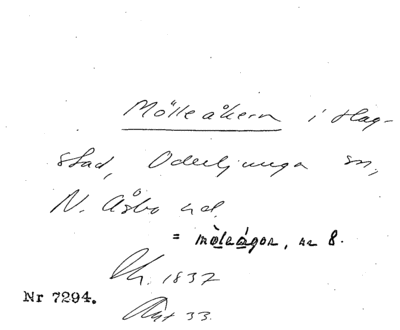 Mölleåkern i Hag-
stad, Oderljunga sn,
N. Åsbo hd.
= möleågor, nr 8.
1837
Nr 7294.
Akt 33.